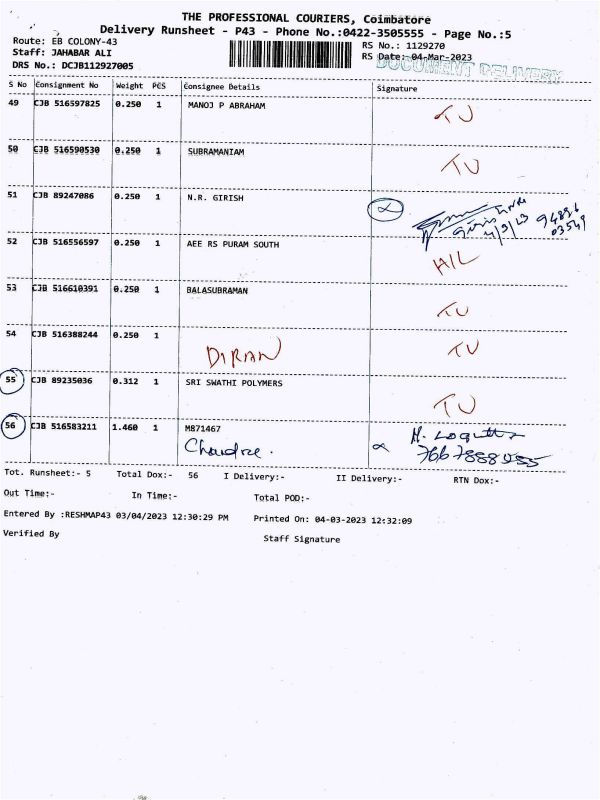 THE PROFESSIONAL COURIERS, Coimbatore
Delivery Runsheet - P43 - Phone No.:0422-3505555 - Page No.:5
Route: EB COLONY-43 RS No.: 1129270
Staff: JAHABAR ALI RS Date: 04-Mar-2023
DRS No.: DCJB112927005 DOCUMENT DELIVERY
S No Consignment No Weight PCS Consignee Details Signature
49 CJB 516597825 0.250 1 MANOJ P ABRAHAM TU
50 CJB 516590530 0.250 1 SUBRAMANIAM TU
51 CJB 89247086 0.250 1 N.R. GIRISH
4/3/23
52 CJB 516556597 0.250 1 AEE RS PURAM SOUTH H/L
53 CJB 516610391 0.250 1 BALASUBRAMAN TU
54 CJB 516388244 0.250 1 DIRAN TU
55 CJB 89235036 0.312 1 SRI SWATHI POLYMERS TU
56 CJB 516583211 1.460 1 M871467
Tot. Runsheet:- 5 Total Dox:- 56 I Delivery:- II Delivery:- RTN Dox:-
Out Time:- In Time:- Total POD:-
Entered By :RESHMAP43 03/04/2023 12:30:29 PM Printed On: 04-03-2023 12:32:09
Verified By Staff Signature